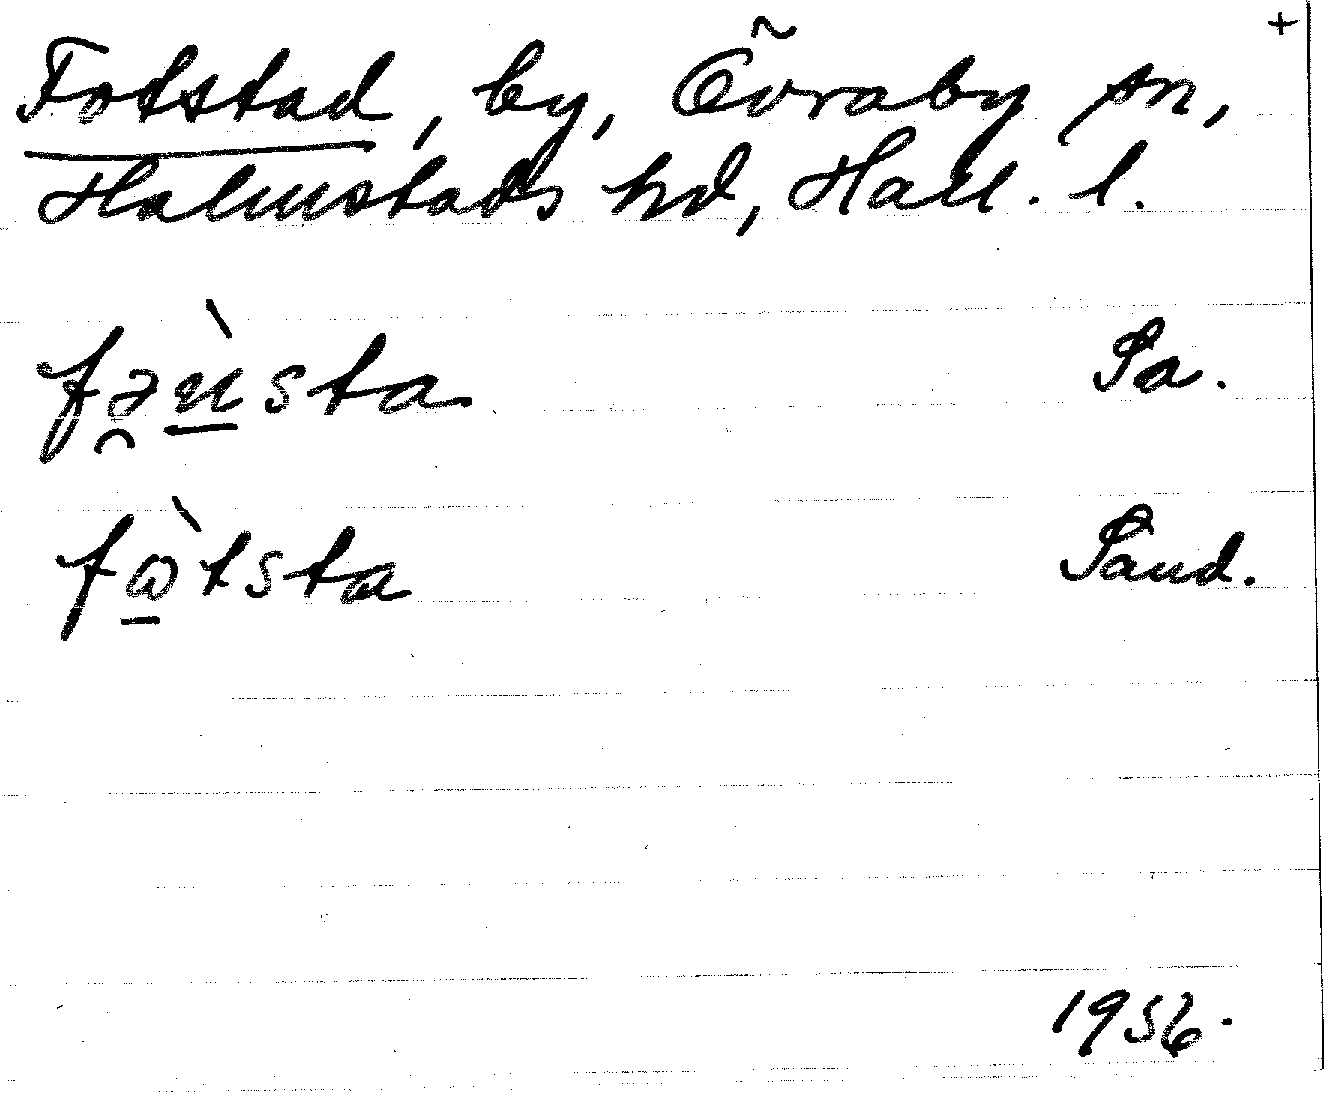 +
Fotstad, by, Övraby sn,
Halmstads hd, Hall. l.
fə̯ùsta Sa.
fὼ̱tsta Sand.
1956.